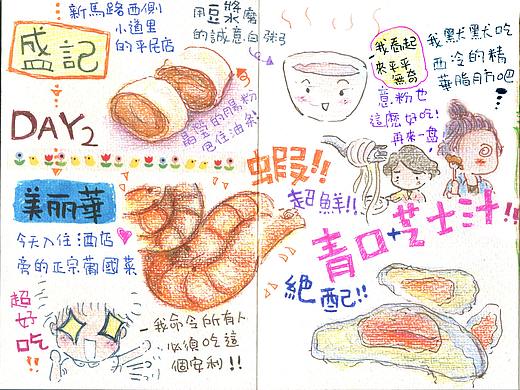 新馬路西側
小道里
的平民店
盛記
DAY2
用豆漿磨
的誠意白粥弓
晶瑩的腸粉
包住油條!
我看起
來平平
無奇
我默默吃
西冷的精
華脂肪吧
意粉也
這麼好吃!
再來一盤!
美丽華
今天入住酒店
旁的正宗葡國菜
超好吃!!
我命令所有人
必須吃這
個安利!!
蝦!!
超鮮!!
青口+芝士汁!!
絕配!!